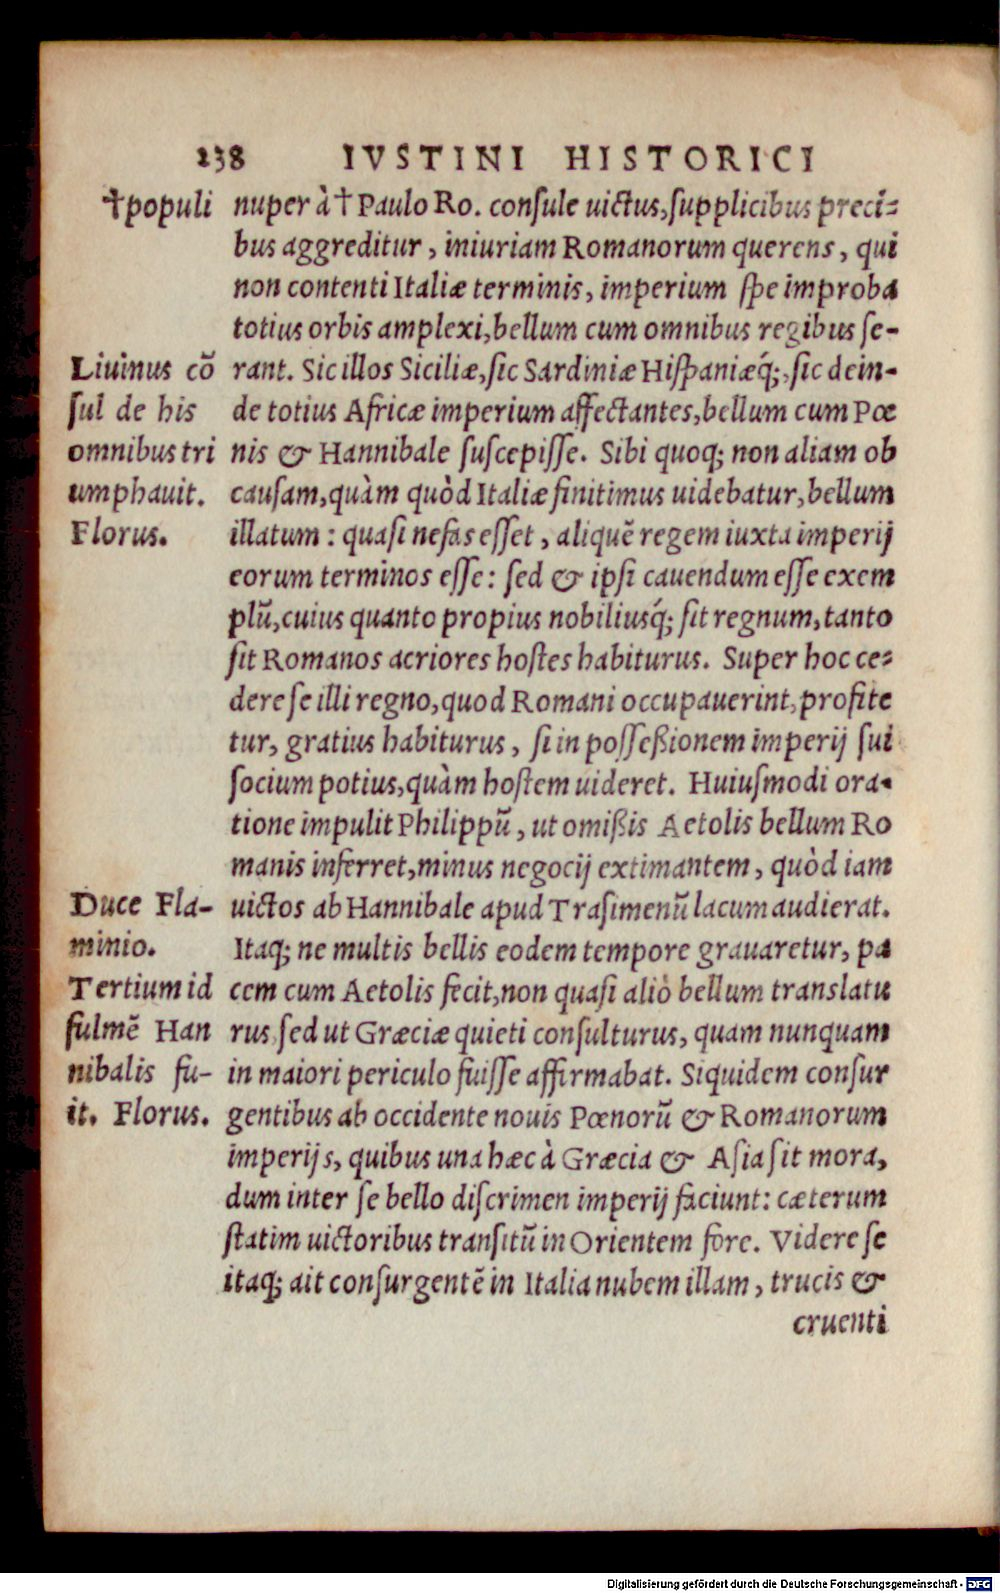 238 IVSTINI HISTORICI
†populi
nuper à † Paulo Ro. consule uictus, supplicibus preci=
bus aggreditur, iniuriam Romanorum querens, qui
non contenti Italiæ terminis, imperium spe improba
totius orbis amplexi, bellum cum omnibus regibus se-
rant. Sic illos Siciliæ, sic Sardiniæ Hispaniæq́;, sic dein-
de totius Africæ imperium affectantes, bellum cum Pœ
nis & Hannibale suscepisse. Sibi quoq; non aliam ob
causam, quàm quòd Italiæ finitimus uidebatur, bellum
illatum: quasi nefas esset, aliquē regem iuxta imperij
eorum terminos esse: sed & ipsi cauendum esse exem
plū, cuius quanto propius nobiliusq́; sit regnum, tanto
sit Romanos acriores hostes habiturus. Super hoc ce=
dere se illi regno, quod Romani occupauerint, profite
tur, gratius habiturus, si in possessionem imperij sui
socium potius, quàm hostem uideret. Huiusmodi ora-
tione impulit Philippū, ut omissis Aetolis bellum Ro
manis inferret, minus negocij extimantem, quòd iam
uictos ab Hannibale apud Trasimenū lacum audierat.
Itaq; ne multis bellis eodem tempore grauaretur, pa
cem cum Aetolis fecit, non quasi aliò bellum translatu
rus, sed ut Græciæ quieti consulturus, quam nunquam
in maiori periculo fuisse affirmabat. Siquidem consur
gentibus ab occidente nouis Pœnorū & Romanorum
imperijs, quibus una hæc à Græcia & Asia sit mora,
dum inter se bello discrimen imperij faciunt: cæterum
statim uictoribus transitū in Orientem fore. Videre se
itaq; ait consurgentē in Italia nubem illam, trucis &
cruenti
Liuinus cō
sul de his
omnibus tri
umphauit.
Florus.
Duce Fla-
minio.
Tertium id
fulmē Han
nibalis fu-
it. Florus.
Digitalisierung gefördert durch die Deutsche Forschungsgemeinschaft - DFG